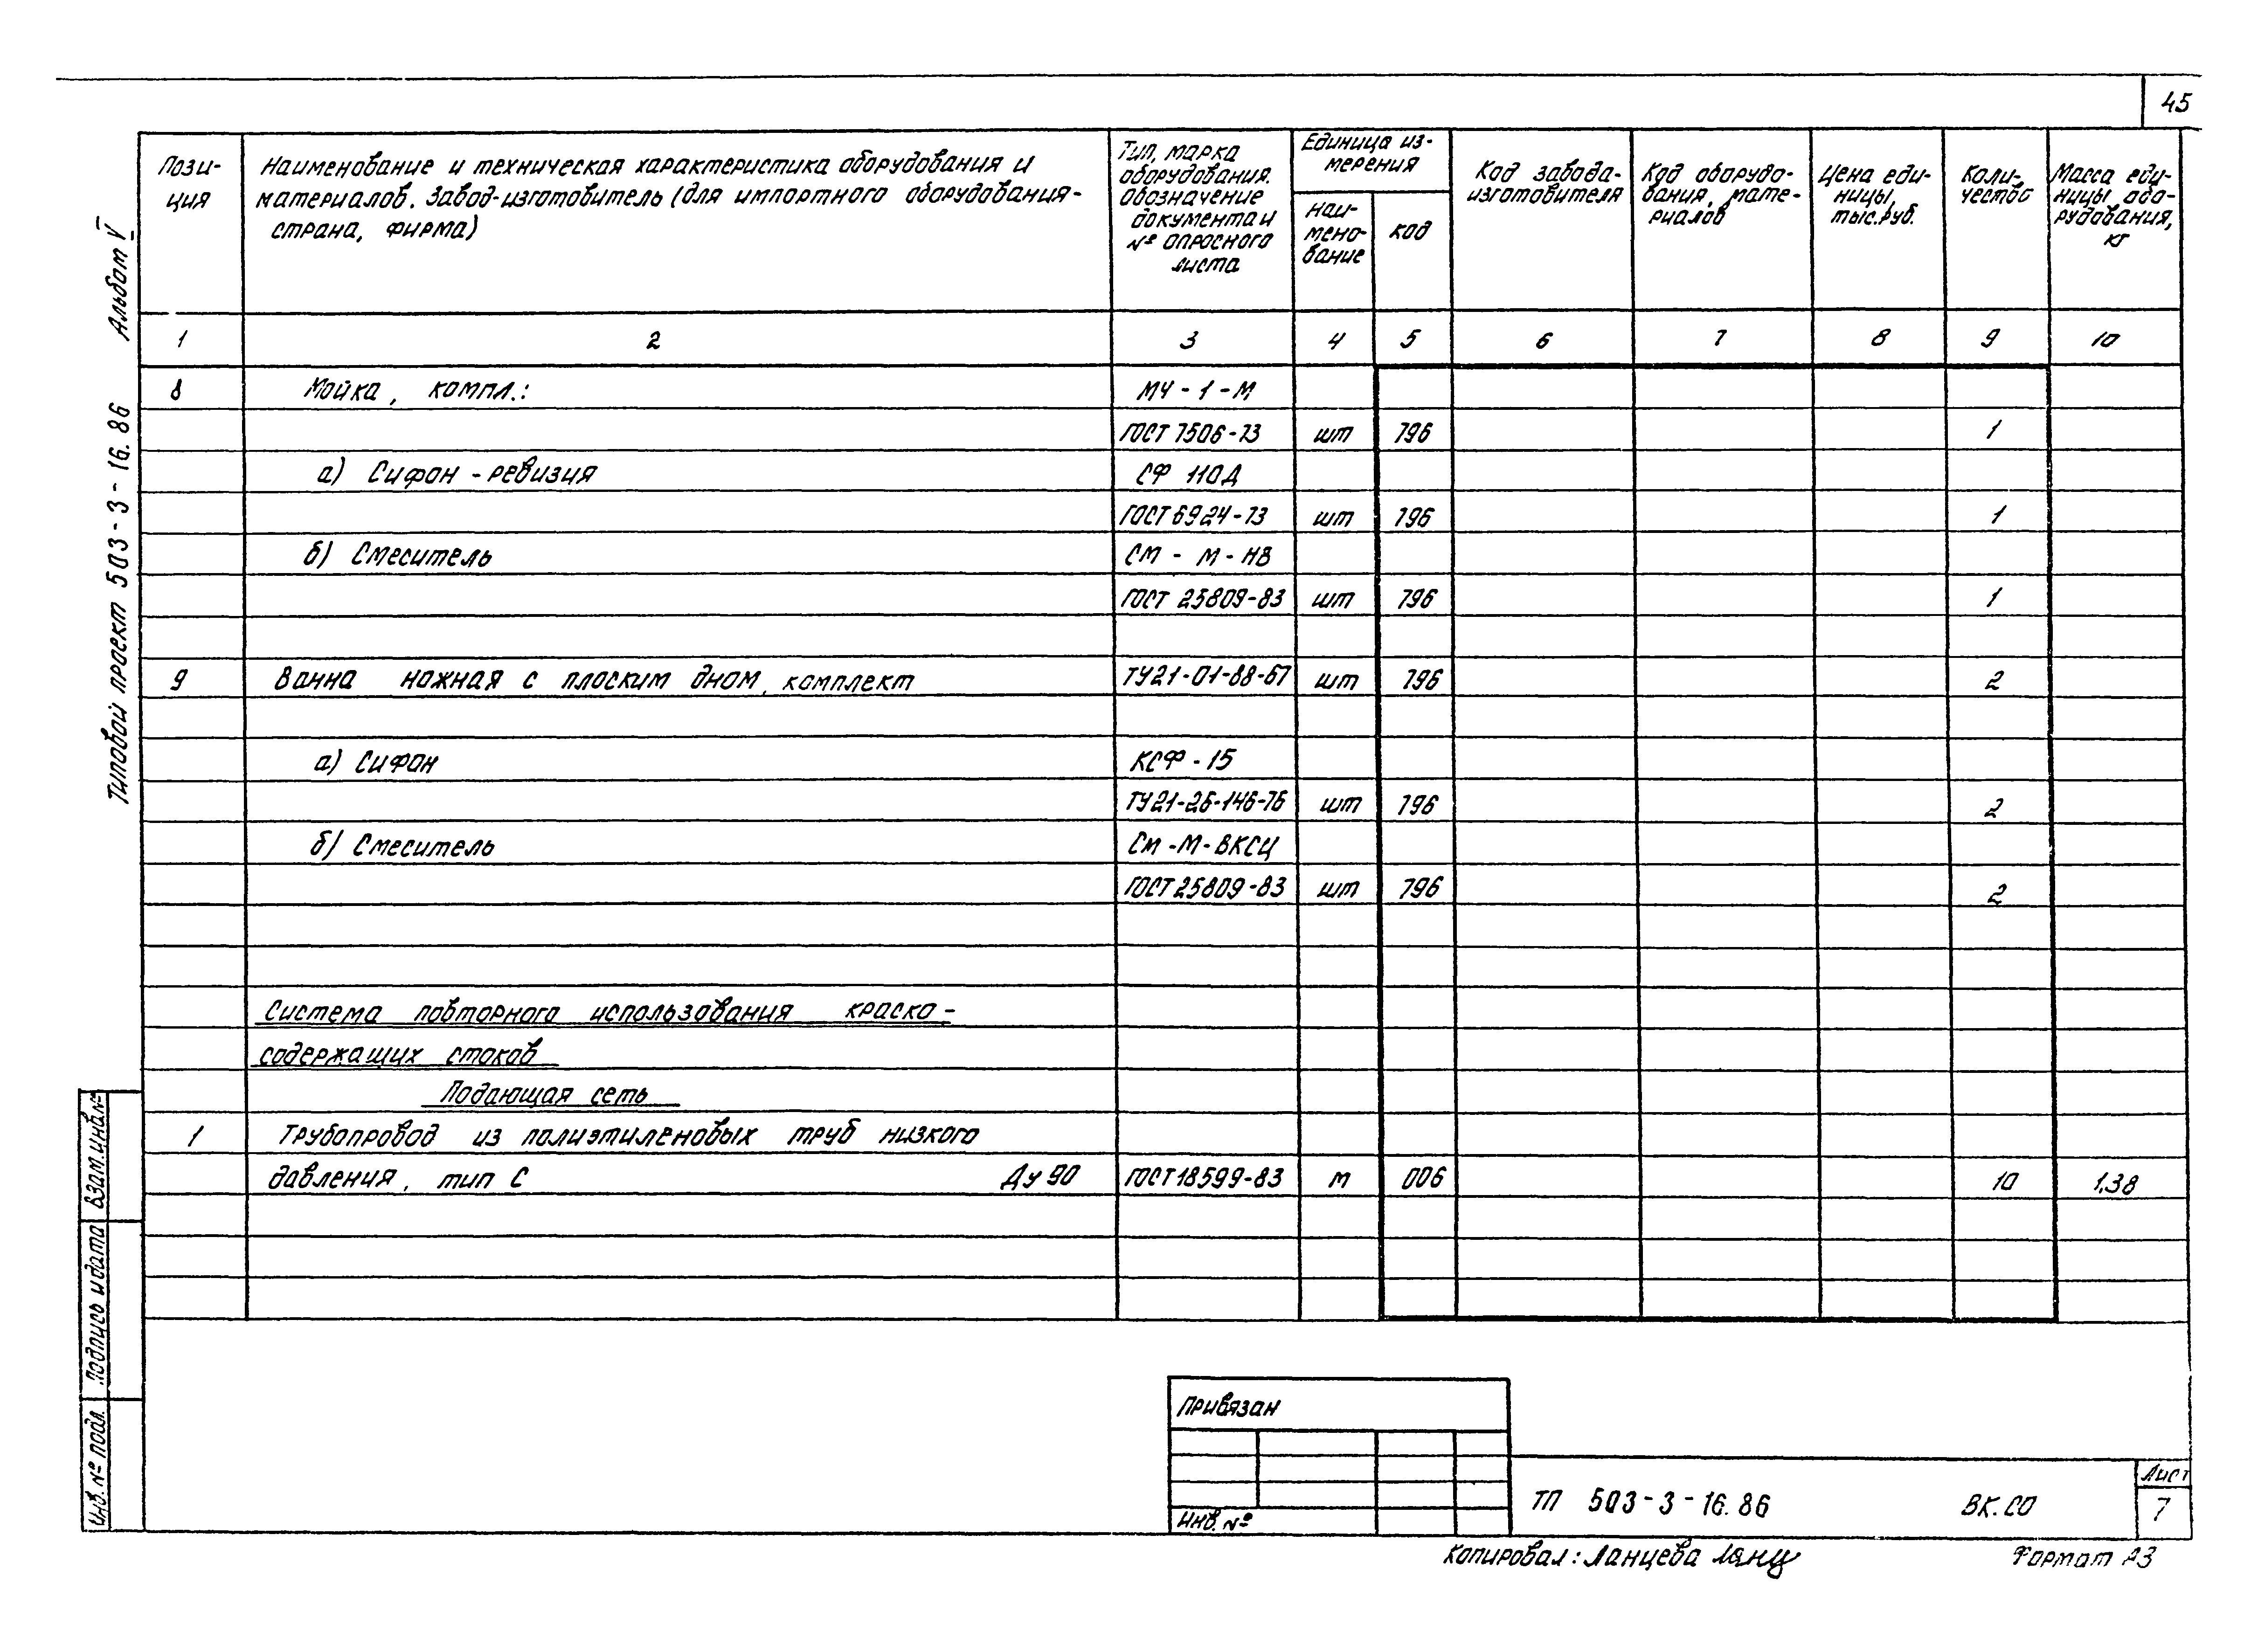 45
Типовой проект 503-3-16.86 Альбом V
Пози-
ция
Наименование и техническая характеристика оборудования и
материалов. Завод-изготовитель (для импортного оборудования-
страна, фирма)
Тип, марка
оборудования.
обозначение
документа и
№ опросного
листа
Единица из-
мерения
Наи-
мено-
вание
код
Код завода-
изготовителя
Код оборудо-
вания, мате-
риалов
Цена еди-
ницы,
тыс.руб.
Коли-
чество
Масса еди-
ницы обо-
рудования,
кг
1 2 3 4 5 6 7 8 9 10
8 Мойка, компл.: МЧ-1-М
ГОСТ 7506-73 шт 796 1
а) Сифон-ревизия СФ 110Д
ГОСТ 6924-73 шт 796 1
б) Смеситель СМ-М-НВ
ГОСТ 25809-83 шт 796 1
9 Ванна ножная с плоским дном, комплект ТУ21-01-88-67 шт 796 2
а) Сифон КСФ-15
ТУ21-26-146-76 шт 796 2
б) Смеситель См-М-ВКСЦ
ГОСТ 25809-83 шт 796 2
Система повторного использования краско-
содержащих стоков
Подающая сеть
1 Трубопровод из полиэтиленовых труб низкого
давления, тип С Ду 90 ГОСТ 18599-83 м 006 10 1,38
Взам.инв.№
Подпись и дата
Инв.№ подл.
Привязан
Инв.№
ТП 503-3-16.86 ВК.СО
Лист
7
Копировал: Ланцева
Формат А3